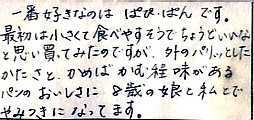 一番好きなのは ぱぴ・ぱん です。
最初は小さくて食べやすそうでちょうどいいな
と思い買ってみたのですが、外のパリッとした
かたさと、かめばかむ程味がある
パンのおいしさに 8歳の娘と私とで
やみつきになってます。